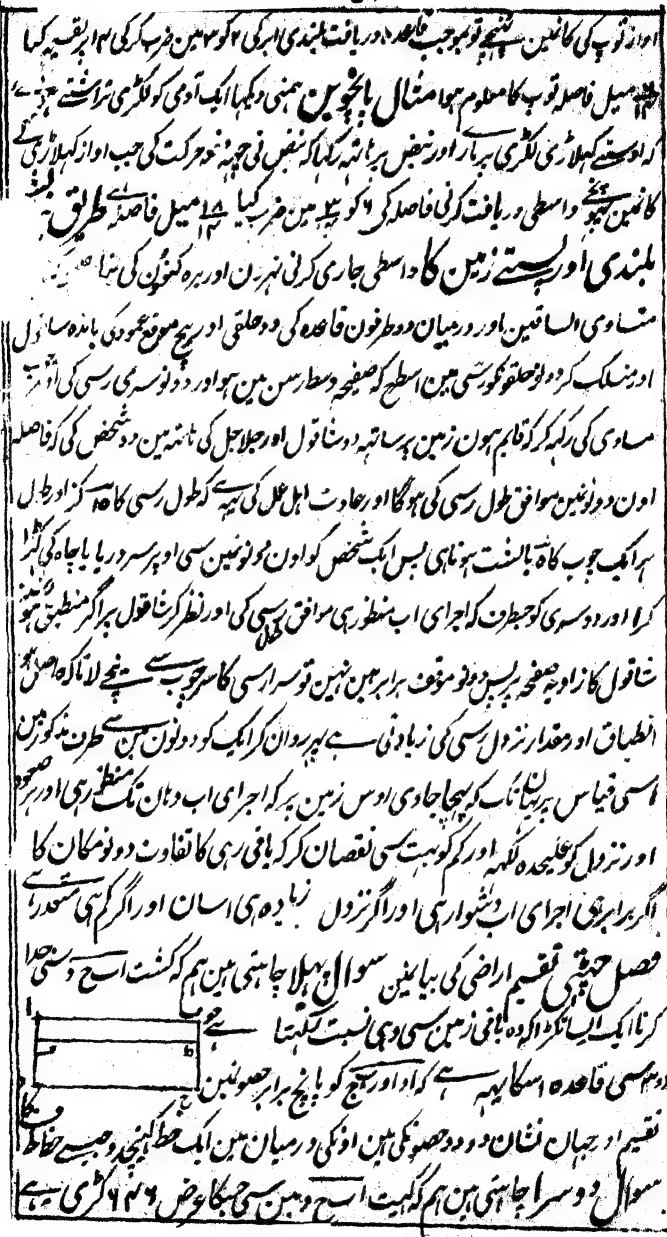 اواز توپ کی کانمین پہنچے تو بموجب قاعدہ دریافت بلندی ابر کی ۴ کو ۳ مین ضرب کرکی ۱۳ پر تقسیم کیا
میل فاصلہ توپ کا معلوم ہوا مثال پانچوین ہمنی دیکہا ایک آدمی کو لکڑی تراشتے
کہ اوسنے کہلاڑی لکڑی پر مار اور نبض پر ہاتہہ رکہا کہ نبض نی چہہ حرکت کی جب اواز کہلاڑی کے
کانمین پہونچے واسطی دریافت کرنی فاصلہ کی ۶ کو مین ضرب کیا میل فاصلہ طریق
بلندی اور پستے زمین کا واسطی جاری کرنی نہرین اور برہ کنوون کی
متساوی الساقین اور درمیان دو طرفون قاعدہ کی دو حلقی اور بیچ موقع عمود کی باندہ شاقول
اور منسلک کر دونو حلقونکو رسی مین اسطرح کہ صفیحہ وسط رسن مین ہو اور دونو سری رسی کی
مساوی کی رکہہ کر کہ قایم ہون زمین پر ساتہہ دو شاقول اور جلاجل کی ہاتہہ مین دو شخص کی کہ فاصلہ
اون دونونمین موافق طول رسی کی ہوگا اور عادت اہل عمل کی یہہ ہے کہ طول رسی کا ۱۵ گز اور طول
ہر ایک چوب کا ۵ بالشت ہوتا ہی پس ایک شخص کو اون دونونمین سی اوپر سر دریا یا چاہ کی کہڑا
کر اور دوسری کو جسطرف کہ اجرای اب منظور ہی موافق رسی کی اور نظر کر شاقول پر اگر منطبق ہو
شاقول کا زاویہ صفیحہ پر پس دونو موقف برابر ہین نہین تو سرا رسی کا سر چوب سے نیچے لا تاکہ حاصل ہو
انطباق اور مقدار نزول رسی کی زیادتی ہے پہر روان کر ایک کو دونون مین سے طرف مذکور مین
اسی قیاس پر یہان تک کہ پہنچا جاوی اوس زمین پر کہ اجرای اب وہان تک منظور ہی اور ہر صعود
اور نزول کو علیحدہ لکہہ اور کم کو بہت سی نقصان کر کہ باقی رہی کا تفاوت دونو مکان کا
اگر برابر ہی اجرای اب دشوار ہی اور اگر نزول زیادہ ہی اسان اور اگر کم ہی متعذر ہے
فصل چوتہی تقسیم اراضی کی بیانمین سوال پہلا چاہتی ہین ہم کہ کشت ا ب ج د سی جدا
کرنا ایک ایسا ٹکڑا کہ وہ باقی زمین سی وہی نسبت رکہتا ہے جو
سی قاعدہ اسکا یہہ ہے کہ ا د اور ب ج کو پانچ برابر حصونمین
تقسیم اور جہان نشان دو دو حصونکی ہین اونکی درمیان مین ایک خط کہینچو جیسے خط
سوال دوسرا چاہتی ہین ہم کہ کہیت ا ب ج د مین سی جسکا عرض ۶۴۶ کڑی ہے